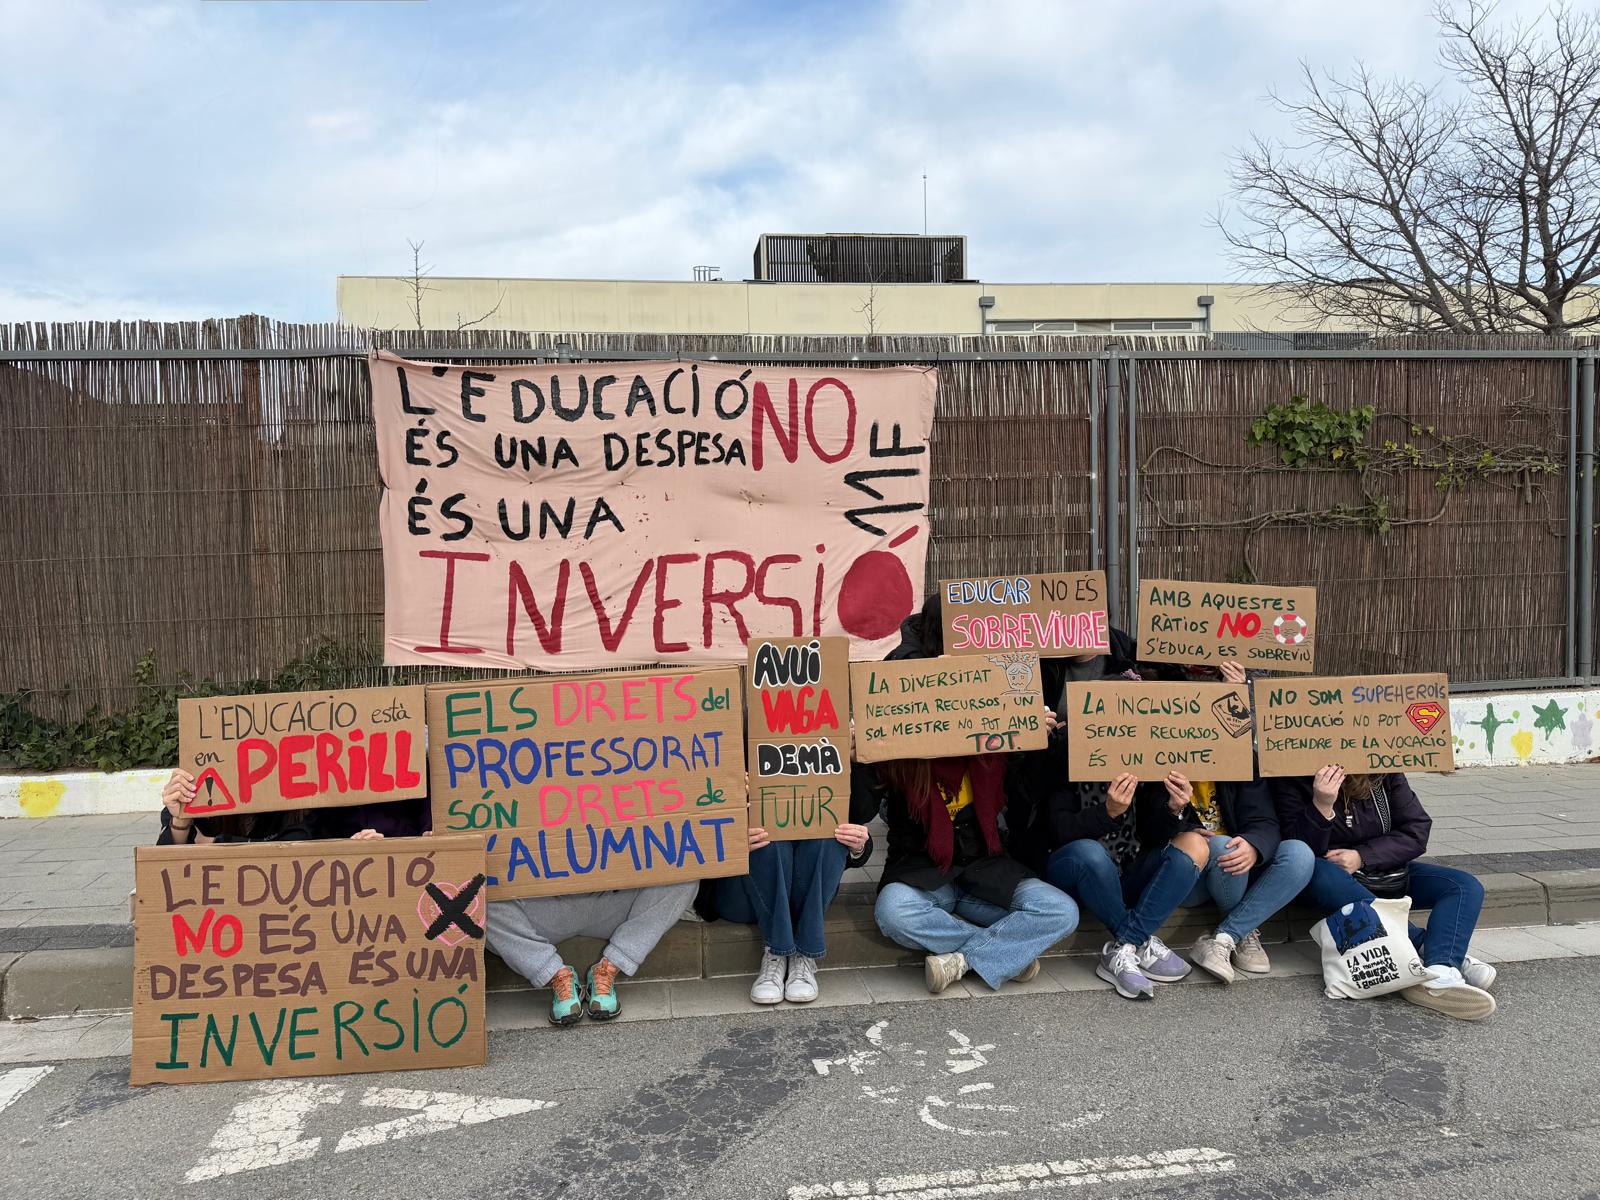 L'EDUCACIÓ NO
ÉS UNA DESPESA
ÉS UNA
INVERSIÓ
EDUCAR NO ÉS
SOBREVIURE
AMB AQUESTES
RÀTIOS NO
S'EDUCA, ES SOBREVIU
L'EDUCACIO està
en PERILL
!
ELS DRETS del
PROFESSORAT
SÓN DRETS de
L'ALUMNAT
AVUI
VAGA
DEMÀ
FUTUR
LA DIVERSITAT
NECESSITA RECURSOS, UN
SOL MESTRE NO POT AMB
TOT.
LA INCLUSIÓ
SENSE RECURSOS
ÉS UN CONTE.
NO SOM SUPEHEROIS
L'EDUCACIÓ NO POT S
DEPENDRE DE LA VOCACIÓ
DOCENT.
L'EDUCACIÓ
NO ÉS UNA
DESPESA ÉS UNA
INVERSIÓ
LA VIDA